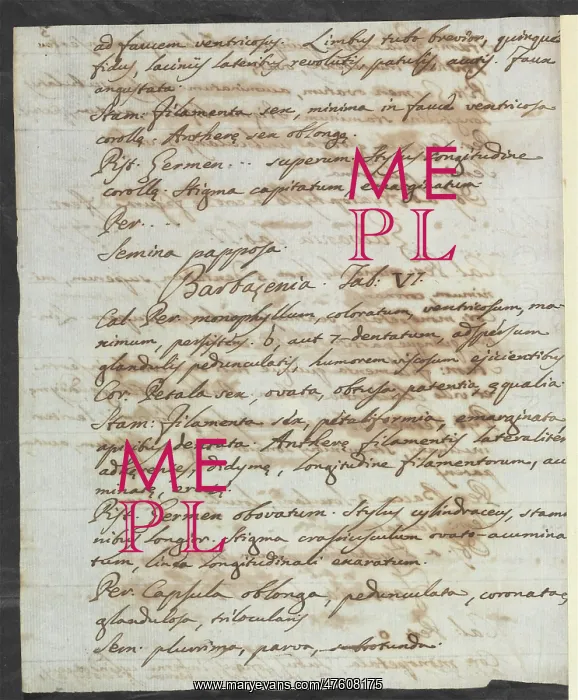 ad faucem ventricosus. Limbus tubo brevior, quinque
fidus, laciniis lateritiis revolutis, patulis, acutis. Faux
angustata.
Stam: filamenta sex, minima in fauce ventricosa
corollę. Antherę sex oblongę.
Pist. Germen... superum. Stylus longitudine
corollę. Stigma capitatum emarginatum
Per....
Semina papposa.
Barbaçenia. Tab. VI.
Cal. Per. monophyllum, coloratum, ventricosum, ma-
nimum, persistens. 6, aut 7-dentatum, adspersum
glandulis pedunculatis, humorem viscosum ejicientibus
Cor. Petala sex, ovata, obtusa, patentia, ęqualia.
Stam: filamenta sex, petaliformia, emarginata
Antherę filamentis lateraliter
didymę, longitudine filamentorum, acu
minatę, erectę.
Pist. Germen obovatum. Stylus cylindraceus, stami
nibus longior. Stigma crassiusculum ovato-acumina
tum, linea longitudinali exaratum.
Per. Capsula oblonga, pedunculata, coronata,
glandulosa, trilocularis
Sem. plurima, parva, subrotunda.
ME
PL
ME
PL
www.maryevans.com/47608175